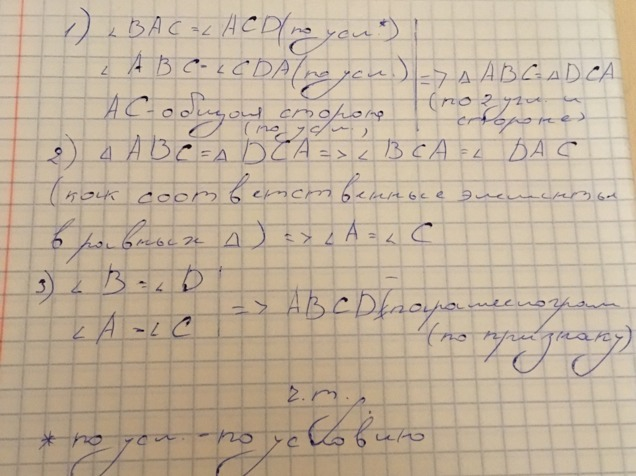 1) ∠BAC=∠ACD(по усл.*)
∠ABC=∠CDA(по усл.) => △ABC=△DCA
AC-общая сторона (по 2 угл. и
(по усл.) стороне)
2) △ABC=△DCA=>∠BCA=∠DAC
(как соответственные элементы
в равных △)=>∠A=∠C
3) ∠B=∠D
=> ABCD-параллелограм
∠A=∠C (по признаку)
ч.т.
* по усл.-по условию